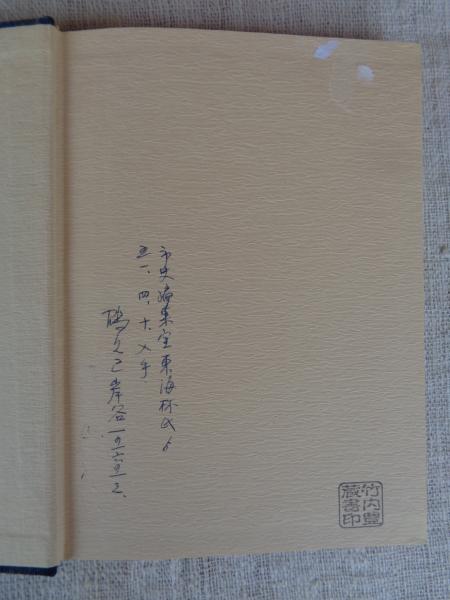 市史編集室東海林氏より
五一、四、十、入手
鶴見区岸谷一の六の三
竹内豊
蔵書印